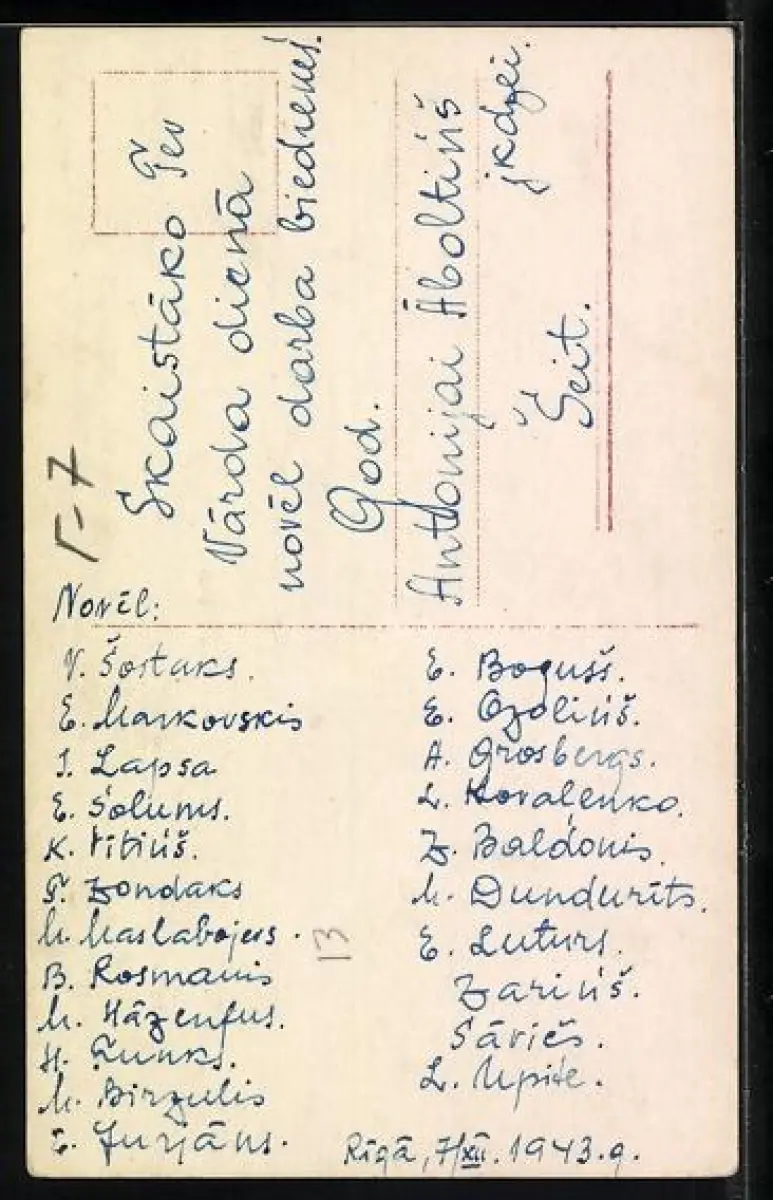 Skaistāko Tev
Vārda dienā
novēl darba biedrenes.
God.
Antonijai Āboltiņš
jkdzei.
Šeit.
Г-7
Novēl:
V. Šostaks.
E. Markovskis
I. Lapsa
E. Solums.
K. Vītiņš.
T. Zondaks
M. Maslabojevs.
B. Rosmanis
M. Hāzenfus.
H. Funks.
M. Birzulis
E. Jurjāns.
E. Bogušs.
E. Ozoliņš.
A. Grosbergs.
L. Kovaļenko.
Z. Baldonis.
M. Dundurīts.
E. Luturs.
Zariņš.
Sāričs.
L. Upīte.
13
Rīgā, 7/XII. 1943.g.